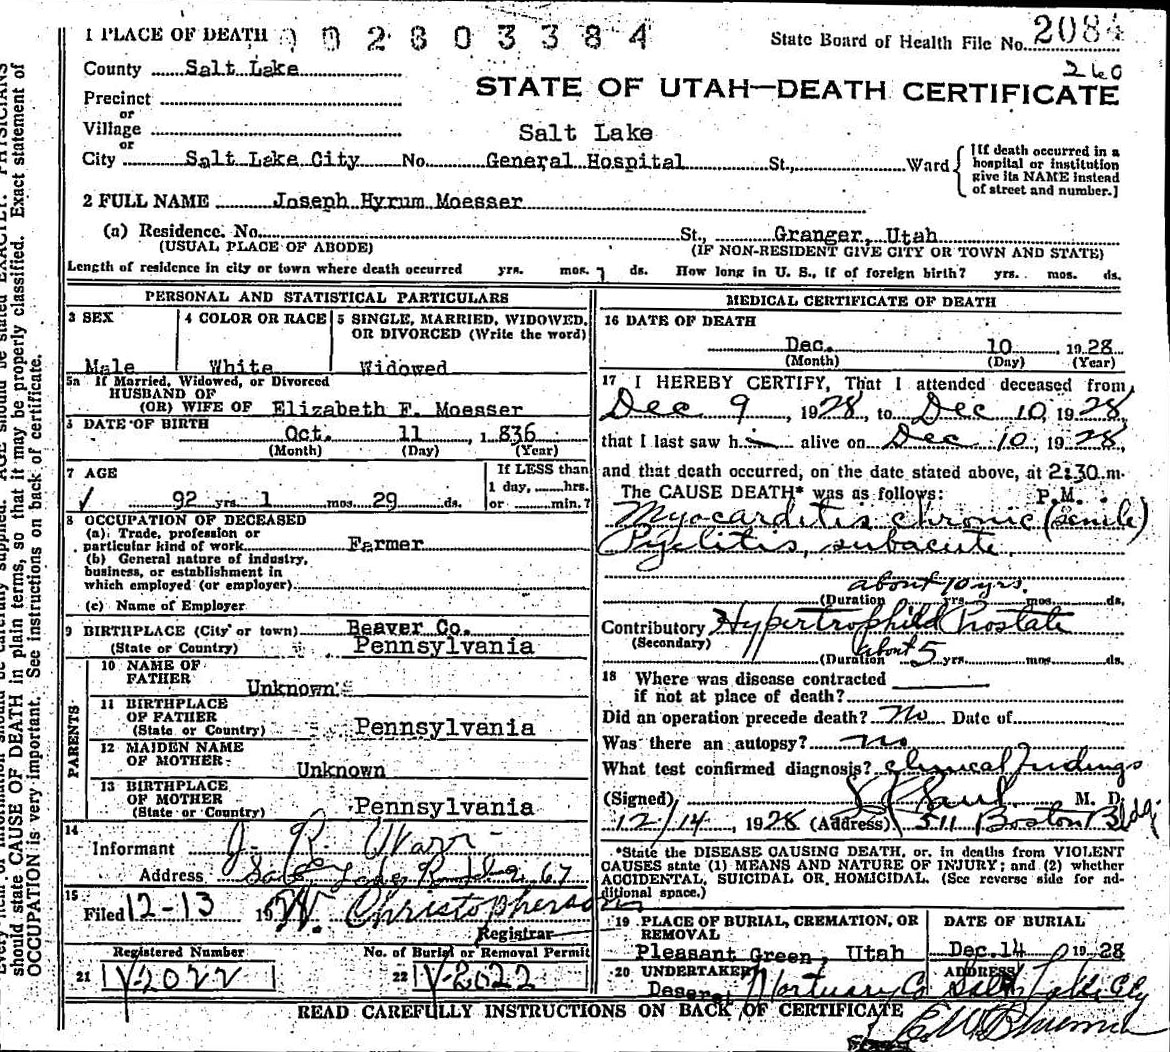 1 PLACE OF DEATH 002803384 State Board of Health File No. 2084
County Salt Lake 260
STATE OF UTAH—DEATH CERTIFICATE
Precinct
or
Village
or
Salt Lake
City Salt Lake City No. General Hospital St., Ward
[If death occurred in a hospital or institution give its NAME instead of street and number.]
2 FULL NAME Joseph Hyrum Moesser
(a) Residence. No. St., Granger, Utah
(USUAL PLACE OF ABODE) (IF NON-RESIDENT GIVE CITY OR TOWN AND STATE)
Length of residence in city or town where death occurred yrs. mos. 1 ds. How long in U. S., if of foreign birth? yrs. mos. ds.
PERSONAL AND STATISTICAL PARTICULARS
3 SEX 4 COLOR OR RACE 5 SINGLE, MARRIED, WIDOWED, OR DIVORCED (Write the word)
Male White Widowed
5a If Married, Widowed, or Divorced
HUSBAND OF
(OR) WIFE OF Elizabeth F. Moesser
6 DATE OF BIRTH Oct. 11, 1836
(Month) (Day) (Year)
7 AGE If LESS than
1 day, hrs.
✓ 92 yrs. 1 mos. 29 ds. or min.?
8 OCCUPATION OF DECEASED
(a) Trade, profession or
particular kind of work Farmer
(b) General nature of industry,
business, or establishment in
which employed (or employer)
(c) Name of Employer
9 BIRTHPLACE (City or town) Beaver Co.
(State or Country) Pennsylvania
PARENTS
10 NAME OF
FATHER Unknown
11 BIRTHPLACE
OF FATHER
(State or Country) Pennsylvania
12 MAIDEN NAME
OF MOTHER Unknown
13 BIRTHPLACE
OF MOTHER
(State or Country) Pennsylvania
14
Informant J. R. Warr
Address Salt Lake R 2 67
15
Filed 12-13 19 W. Christopherson
Registrar
Registered Number No. of Burial or Removal Permit
21 V-2022 22 V-2022
MEDICAL CERTIFICATE OF DEATH
16 DATE OF DEATH
Dec. 10, 1928
(Month) (Day) (Year)
17 I HEREBY CERTIFY, That I attended deceased from
Dec 9, 1928, to Dec 10, 1928
that I last saw h im alive on Dec 10, 1928
and that death occurred, on the date stated above, at 2:30 m.
The CAUSE DEATH* was as follows: P.M.
Myocarditis chronic (senile)
Pyelitis, subacute,
about 10 yrs.
(Duration yrs. mos. ds.
Contributory Hypertrophied Prostate
(Secondary) about
(Duration 5 yrs. mos. ds.
18 Where was disease contracted
if not at place of death?
Did an operation precede death? No Date of
Was there an autopsy? no
What test confirmed diagnosis? Clinical Findings
(Signed) M. D.
12/14, 1928 (Address) 511 Boston Bldg.
*State the DISEASE CAUSING DEATH, or, in deaths from VIOLENT
CAUSES state (1) MEANS AND NATURE OF INJURY; and (2) whether
ACCIDENTAL, SUICIDAL OR HOMICIDAL. (See reverse side for ad-
ditional space.)
19 PLACE OF BURIAL, CREMATION, OR REMOVAL DATE OF BURIAL
Pleasant Green, Utah Dec. 14 1928
20 UNDERTAKER ADDRESS
Deseret Mortuary Co Salt Lake City
READ CAREFULLY INSTRUCTIONS ON BACK OF CERTIFICATE
should state CAUSE OF DEATH in plain terms, so that it may be properly classified. Exact statement of
OCCUPATION is very important. See instructions on back of certificate.